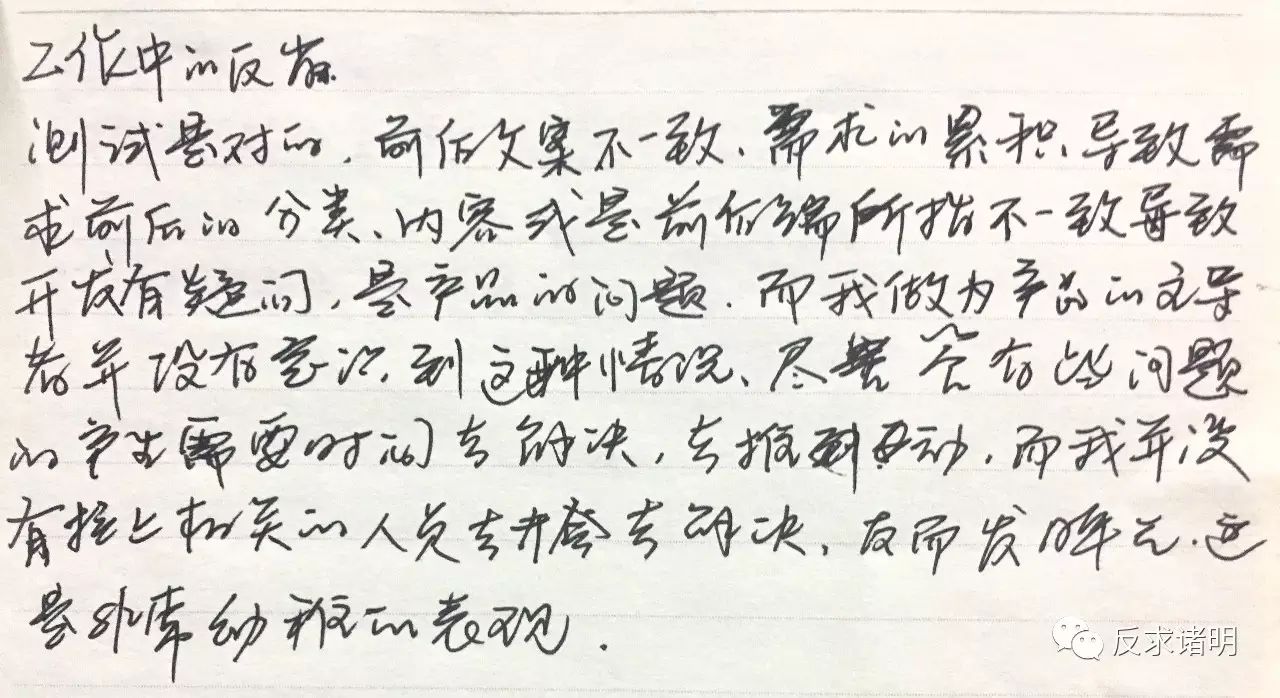 工作中的反省
测试是对的,前后文案不一致、需求的累积导致需
求前后的分类、内容或是前后端所指不一致导致
开发有疑问,是产品的问题.而我做为产品的主导
者并没有意识到这种情况、尽管会有些问题
的产生需要时间去解决,去推动,而我并没
有拉上相关的人员去开会去解决,反而发牢骚.这
是非常幼稚的表现.
反求诸明